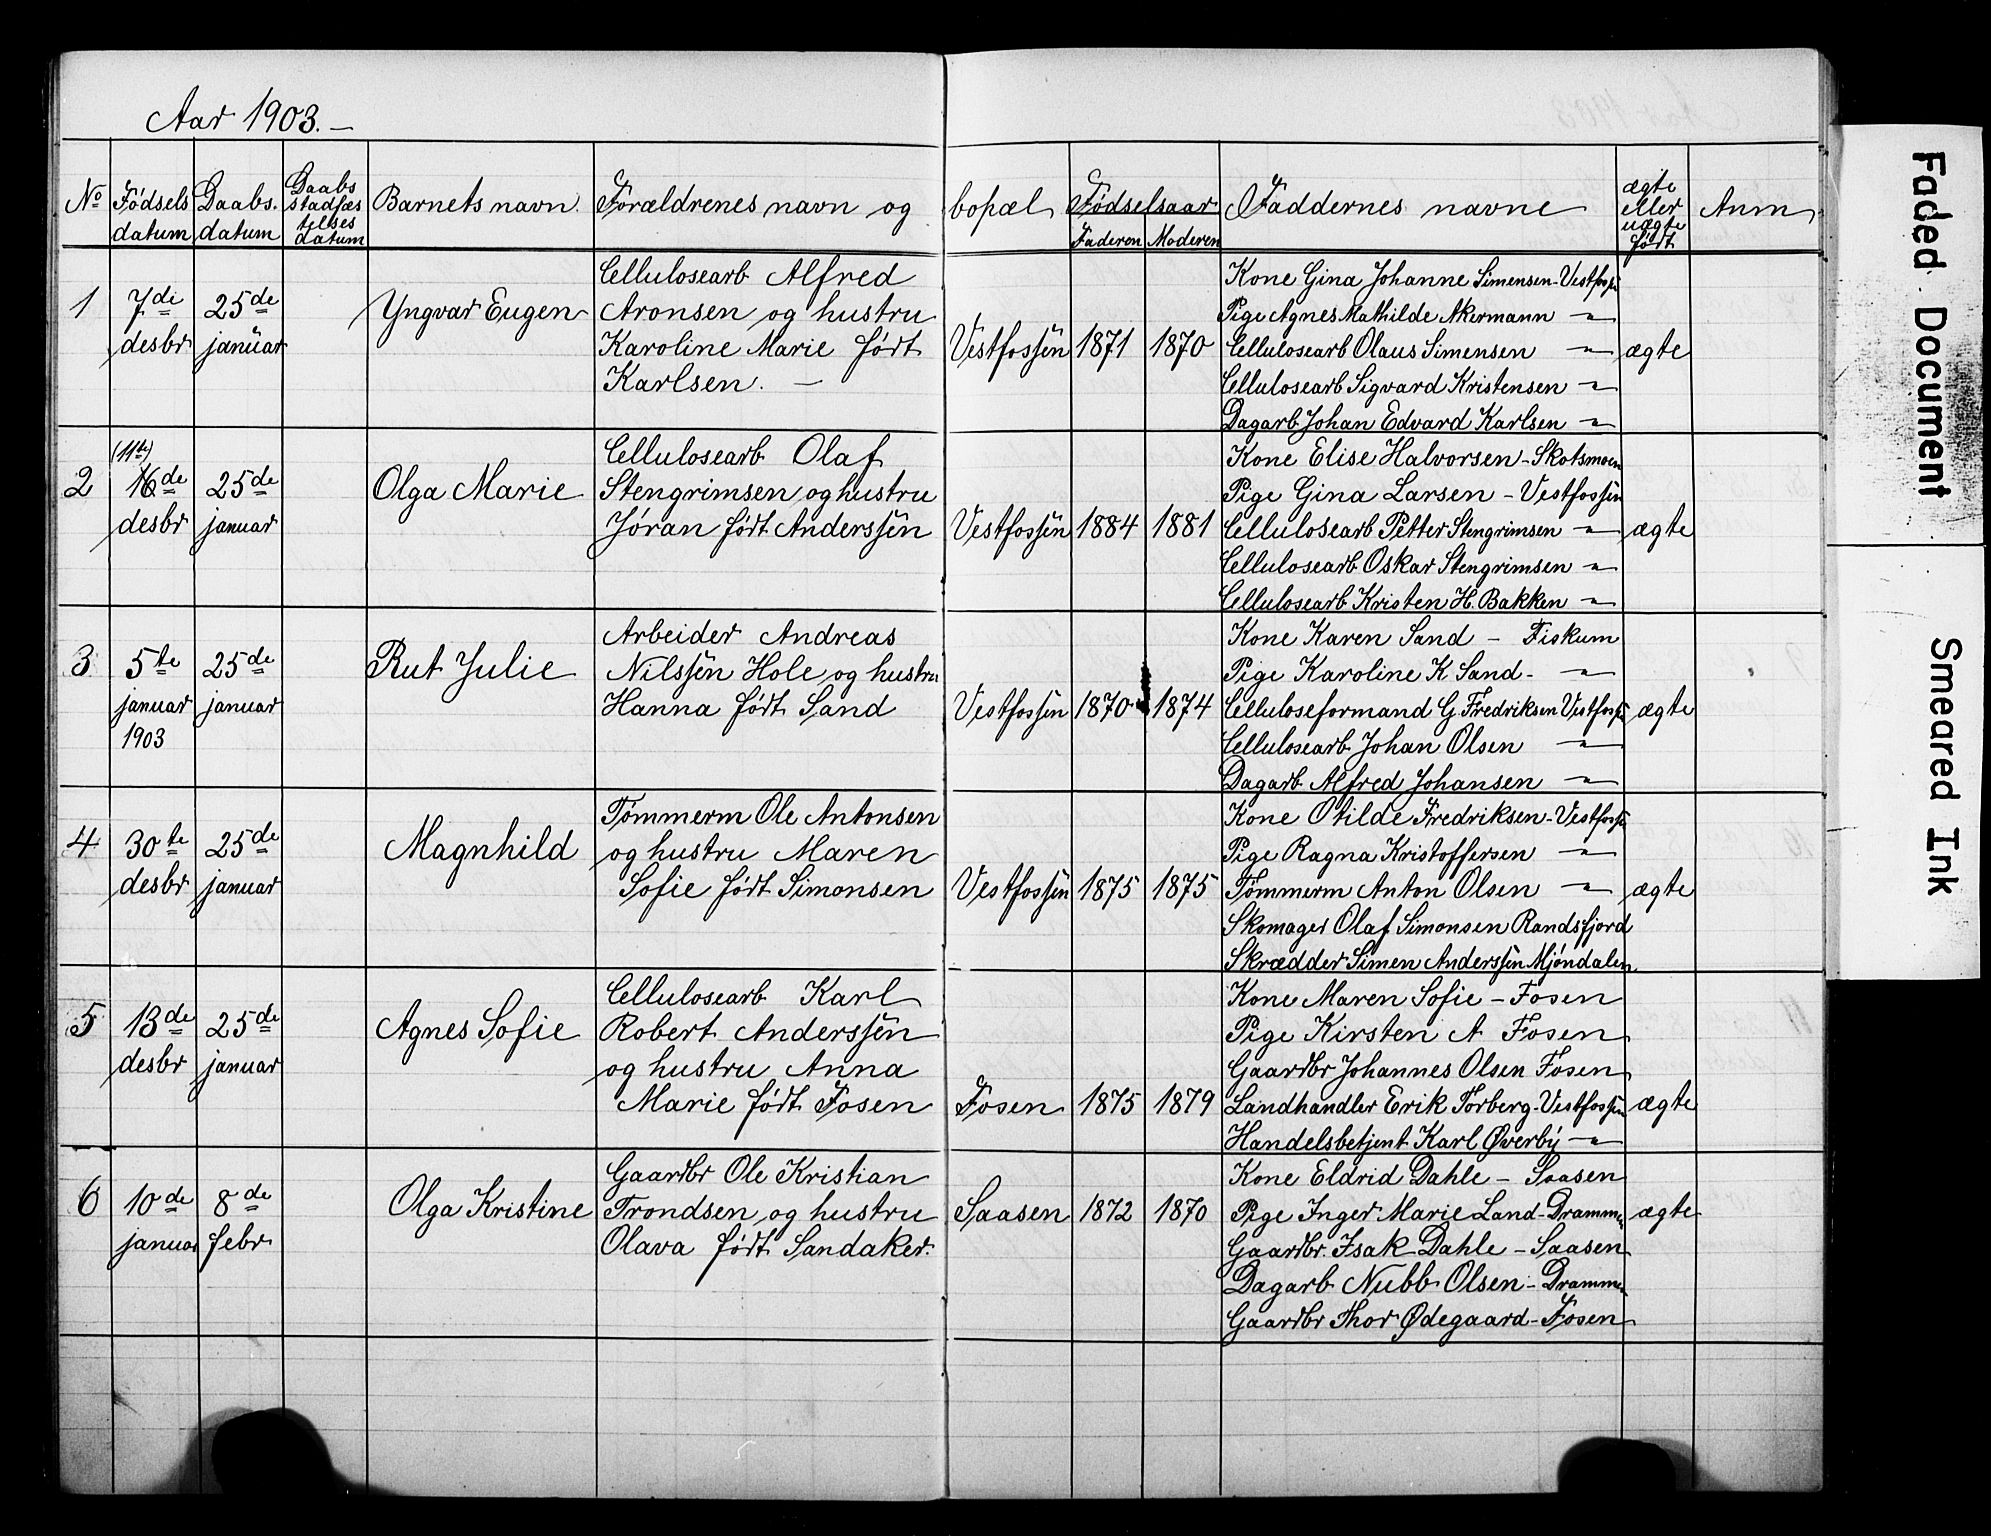 Aar 1903.—
No Fødsels datum Daabs. datum Daabs stadfæs telses datum Barnets navn. Forældrenes navn og bopæl Fødselsaar Faderen Moderen Faddernes navne ægte eller uægte født Anm
1
7di
desbr
25de
januar
Yngvar Eugen
Cellulosearb Alfred
Aronsen og hustru
Karoline Marie født
Karlsen. —
Vestfossen 1871 1870
Kone Gina Johanne Simensen-Vestfossen
Pige Agnes Mathilde Akermann —"—
Cellulosearb Olaus Simensen —"—
Cellulosearb Sigvard Kristensen —"—
Dagarb Johan Edvard Karlsen —"—
ægte
2
(11te)
16de
desbr
25de
januar
Olga Marie
Cellulosearb Olaf
Stengrimsen og hustru
Jøran født Anderssen
Vestfossen 1884 1881
Kone Elise Halvorsen-Skotsmoen
Pige Gina Larsen - Vestfossen
Cellulosearb Petter Stengrimsen —"—
Cellulosearb Oskar Stengrimsen —"—
Cellulosearb Kristen H. Bakken —"—
ægte
3
5te
januar
1903
25de
januar
Rut Julie
Arbeider Andreas
Nilssen Hole og hustru
Hanna født Sand
Vestfossen 1870 1874
Kone Karen Sand - Fiskum
Pige Karoline K Sand- —"—
Celluloseformand G. Fredriksen Vestfossen
Cellulosearb Johan Olsen —"—
Dagarb Alfred Johansen —"—
ægte
4
30te
desbr
25de
januar
Magnhild
Tømmerm Ole Antonsen
og hustru Maren
Sofie født Simonsen
Vestfossen 1875 1875
Kone Otilde Fredriksen-Vestfossen
Pige Ragna Kristoffersen —"—
Tømmerm Anton Olsen —"—
Skomager Olaf Simonsen Randsfjord
Skrædder Simen Anderssen Mjøndalen
ægte
5
13de
desbr
25de
januar
Agnes Sofie
Cellulosearb Karl
Robert Anderssen
og hustru Anna
Marie født Fosen
Fosen 1875 1879
Kone Maren Sofie - Fosen
Pige Kirsten A Fosen
Gaardbr Johannes Olsen Fosen
Landhandler Erik Torberg-Vestfossen
Handelsbetjent Karl Øverby —"—
ægte
6
10de
januar
8de
febr
Olga Kristine
Gaardbr Ole Kristian
Trondsen og hustru
Olava født Sandaker.
Saasen 1872 1870
Kone Eldrid Dahle - Saasen
Pige Inger Marie Land-Drammen
Gaardbr. Isak Dahle - Saasen
Dagarb Nubb Olsen - Drammen
Gaardbr Thor Ødegaard - Fosen
ægte
Faded Document
Smeared Ink